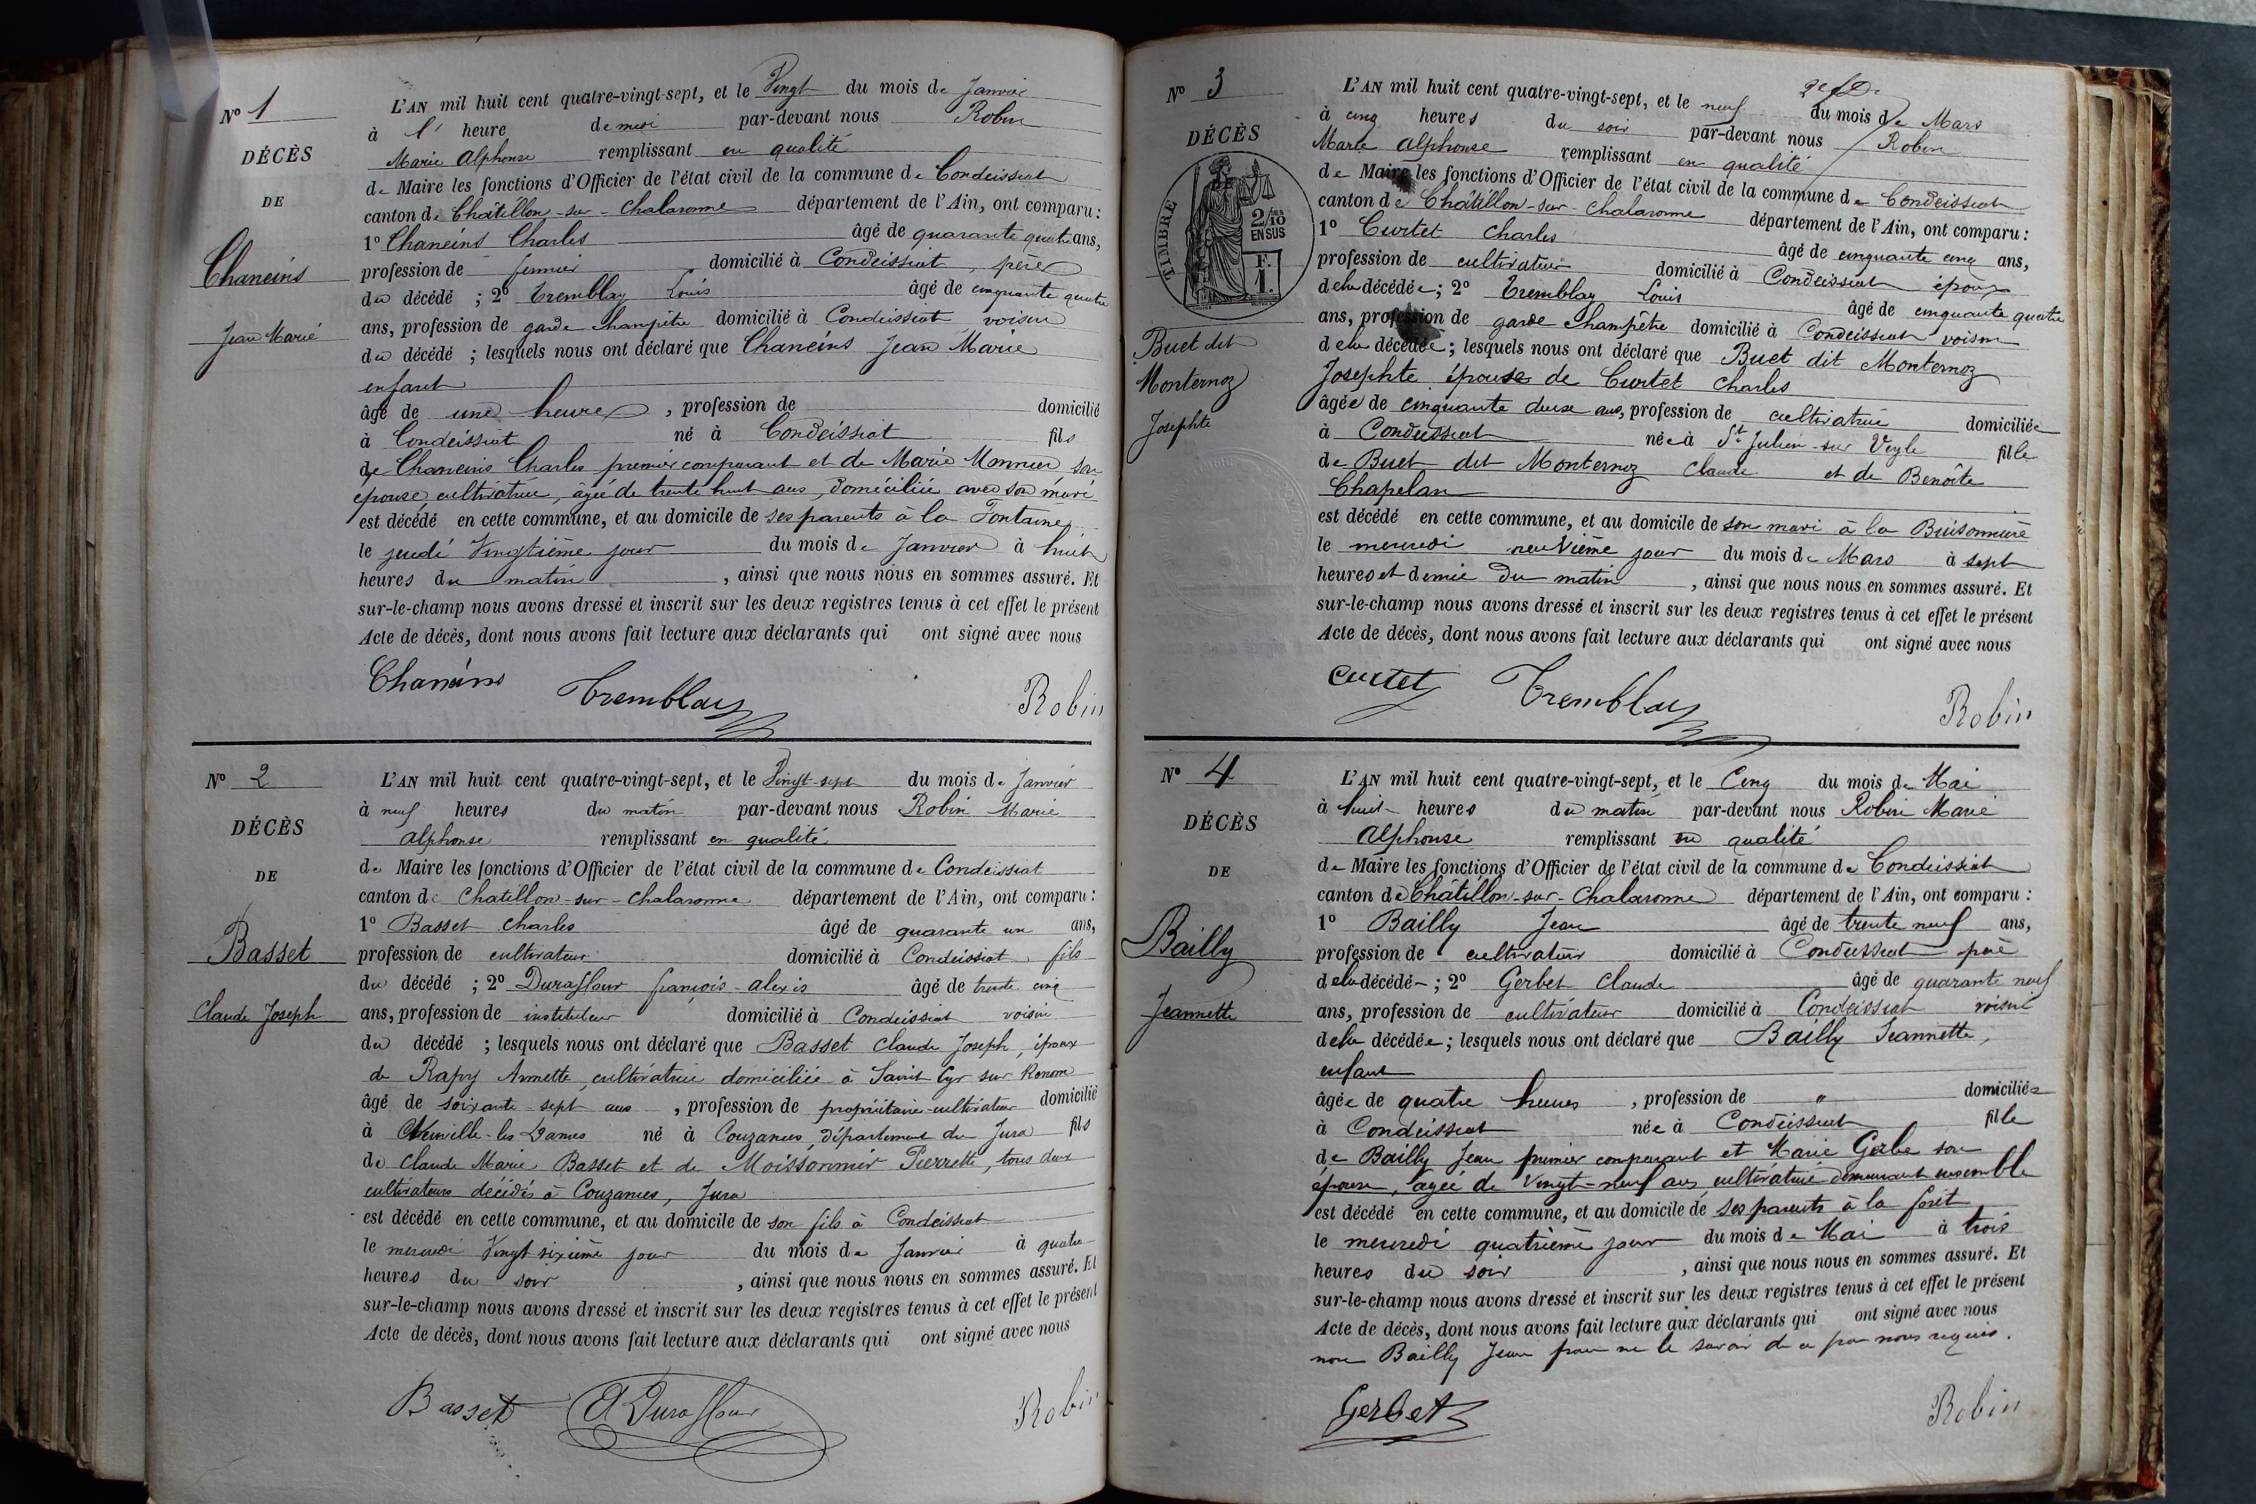 N° 1
DÉCÈS
DE
Chaneins
Jean Marie
L'AN mil huit cent quatre-vingt-sept, et le Vingt du mois de Janvier
à 1 heure demi par-devant nous Robin
Marie Alphonse remplissant en qualité
de Maire les fonctions d'Officier de l'état civil de la commune de Condeissiat
canton de Châtillon-sur-Chalaronne département de l'Ain, ont comparu :
1° Chaneins Charles âgé de quarante quatre ans,
profession de fermier domicilié à Condeissiat, père
du décédé ; 2° Tremblay Louis âgé de cinquante quatre
ans, profession de garde champêtre domicilié à Condeissiat voisin
du décédé ; lesquels nous ont déclaré que Chaneins Jean Marie
enfant
âgé de une heure, profession de domicilié
à Condeissiat né à Condeissiat fils
de Chaneins Charles premier comparant et de Marie Monnier son
épouse cultivatrice, âgée de trente huit ans, domiciliée avec son mari
est décédé en cette commune, et au domicile de ses parents à la Fontaine
le jeudi Vingtième jour du mois de Janvier à huit
heures du matin, ainsi que nous nous en sommes assuré. Et
sur-le-champ nous avons dressé et inscrit sur les deux registres tenus à cet effet le présent
Acte de décès, dont nous avons fait lecture aux déclarants qui ont signé avec nous
Chaneins Tremblay Robin
N° 2
DÉCÈS
DE
Basset
Claude Joseph
L'AN mil huit cent quatre-vingt-sept, et le Vingt-sept du mois de Janvier
à neuf heures du matin par-devant nous Robin Marie
Alphonse remplissant en qualité
de Maire les fonctions d'Officier de l'état civil de la commune de Condeissiat
canton de Chatillon-sur-Chalaronne département de l'Ain, ont comparu :
1° Basset Charles âgé de quarante un ans,
profession de cultivateur domicilié à Condeissiat, fils
du décédé ; 2° Duraffour françois-alexis âgé de trente cinq
ans, profession de instituteur domicilié à Condeissiat voisin
du décédé ; lesquels nous ont déclaré que Basset Claude Joseph, époux
de Rapy Annette cultivatrice domiciliée à Saint Cyr sur Menon
âgé de soixante-sept ans, profession de propriétaire-cultivateur domicilié
à Neuville-les-Dames né à Couzances, Département du Jura fils
de Claude Marie Basset et de Moissonnier Pierrette, tous deux
cultivateurs décédés à Couzances, Jura
est décédé en cette commune, et au domicile de son fils à Condeissiat
le mercredi Vingt sixième jour du mois de Janvier à quatre
heures du soir, ainsi que nous nous en sommes assuré. Et
sur-le-champ nous avons dressé et inscrit sur les deux registres tenus à cet effet le présent
Acte de décès, dont nous avons fait lecture aux déclarants qui ont signé avec nous
Basset A Duraffour Robin
N° 3
DÉCÈS
TIMBRE
2/10
EN SUS
F.
1.
Buet dit
Monternoz
Josephte
L'AN mil huit cent quatre-vingt-sept, et le neuf du mois de Mars
à cinq heures du soir par-devant nous Robin
Marie Alphonse remplissant en qualité
de Maire les fonctions d'Officier de l'état civil de la commune de Condeissiat
canton de Châtillon-sur-Chalaronne département de l'Ain, ont comparu :
1° Curtet Charles âgé de cinquante cinq ans,
profession de cultivateur domicilié à Condeissiat époux
de la décédée ; 2° Tremblay Louis âgé de cinquante quatre
ans, profession de garde champêtre domicilié à Condeissiat voisin
de la décédée ; lesquels nous ont déclaré que Buet dit Monternoz
Josephte épouse de Curtet Charles
âgée de cinquante deux ans, profession de cultivatrice domiciliée
à Condeissiat née à St Julien-sur Veyle fille
de Buet dit Monternoz Claude et de Benoîte
Chapelan
est décédé en cette commune, et au domicile de son mari à la Buisonnière
le mercredi neuvième jour du mois de Mars à sept
heures et demie du matin, ainsi que nous nous en sommes assuré. Et
sur-le-champ nous avons dressé et inscrit sur les deux registres tenus à cet effet le présent
Acte de décès, dont nous avons fait lecture aux déclarants qui ont signé avec nous
Curtet Tremblay Robin
N° 4
DÉCÈS
DE
Bailly
Jeannette
L'AN mil huit cent quatre-vingt-sept, et le Cinq du mois de Mai
à huit heures du matin par-devant nous Robin Marie
Alphonse remplissant en qualité
de Maire les fonctions d'Officier de l'état civil de la commune de Condeissiat
canton de Châtillon-sur-Chalaronne département de l'Ain, ont comparu :
1° Bailly Jean âgé de trente neuf ans,
profession de cultivateur domicilié à Condeissiat père
de la décédée ; 2° Gerbet Claude âgé de quarante neuf
ans, profession de cultivateur domicilié à Condeissiat voisin
de la décédée ; lesquels nous ont déclaré que Bailly Jeannette,
enfant
âgée de quatre heures, profession de " domiciliée
à Condeissiat née à Condeissiat fille
de Bailly Jean premier comparant et Marie Gerbe son
épouse, âgée de Vingt-neuf ans cultivatrice demeurant ensemble
est décédé en cette commune, et au domicile de ses parents à la forêt
le mercredi quatrième jour du mois de Mai à trois
heures du soir, ainsi que nous nous en sommes assuré. Et
sur-le-champ nous avons dressé et inscrit sur les deux registres tenus à cet effet le présent
Acte de décès, dont nous avons fait lecture aux déclarants qui ont signé avec nous
non Bailly Jean pour ne le savoir de ce par nous requis.
Gerbet Robin